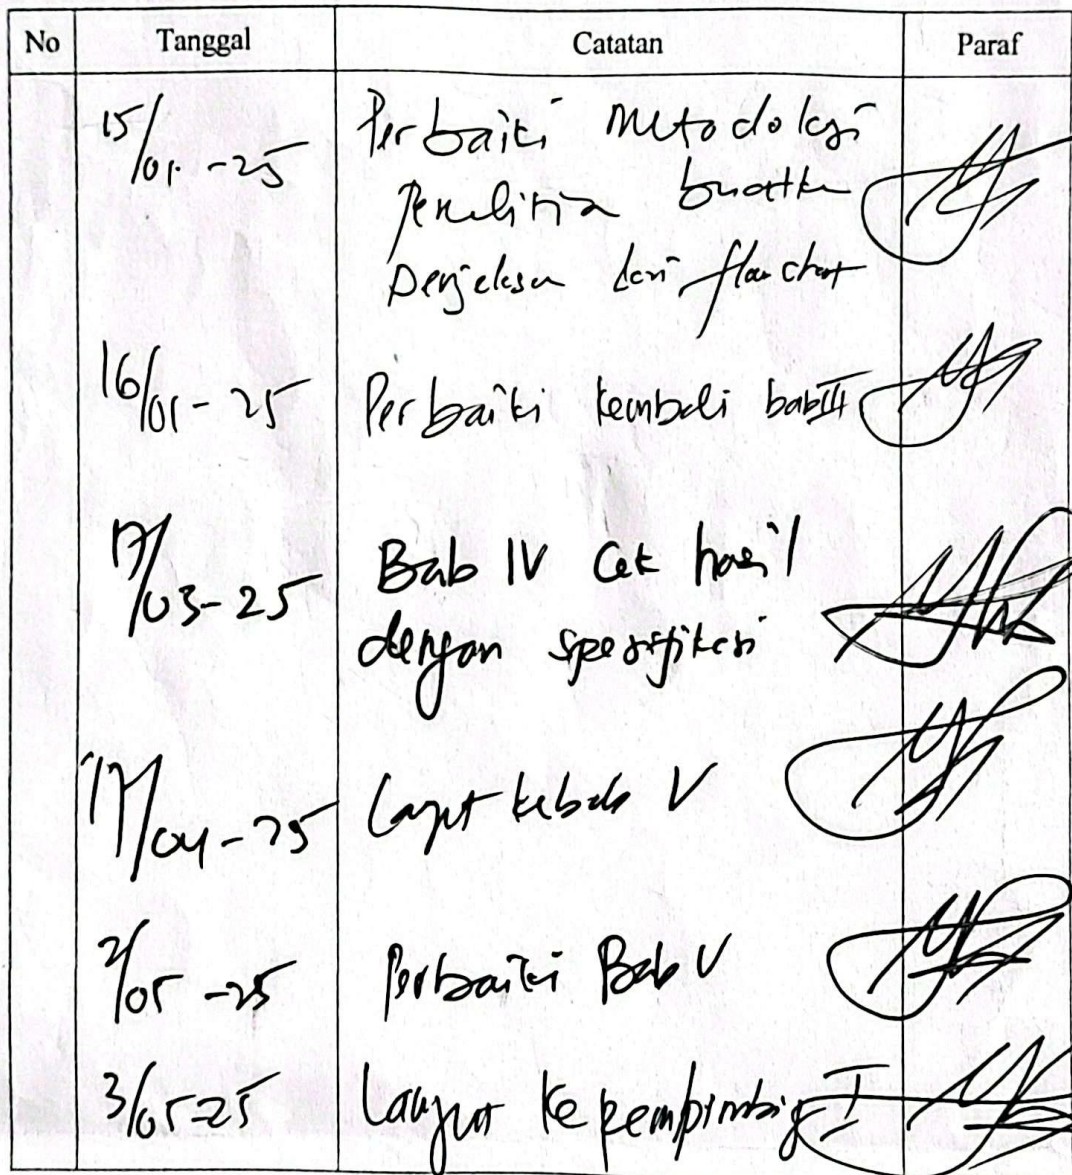 No Tanggal Catatan Paraf
15/01-25 Perbaiki metodologi
Penelitian buatkan
Penjelasan dari flowchart
16/01-25 Perbaiki kembali bab III
17/03-25 Bab IV Cek hasil
dengan spesifikasi
17/04-25 Lanjut kebab V
2/05-25 Perbaiki Bab V
3/05-25 Lanjut ke pembimbing I